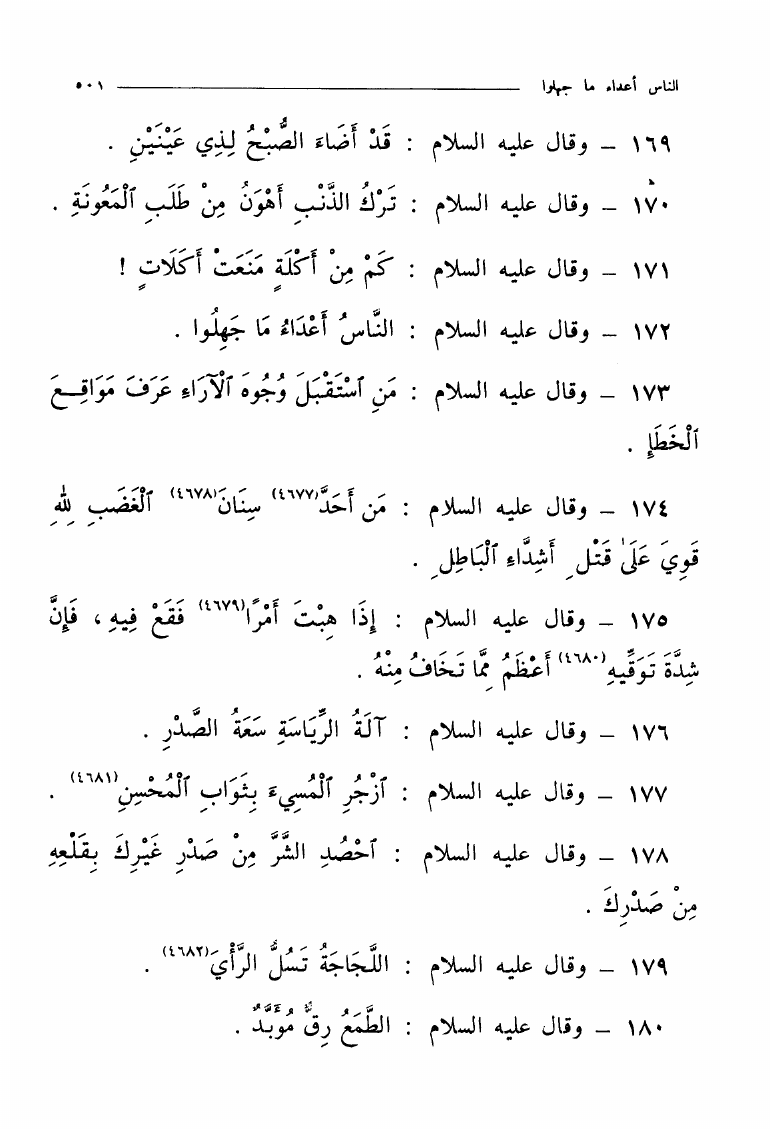 الناس أعداء ما جهلوا ٥٠١
١٦٩ – وقال عليه السلام : قَدْ أَضَاءَ الصُّبْحُ لِذِي عَيْنَيْنِ .
١٧٠ – وقال عليه السلام : تَرْكُ الذَّنْبِ أَهْوَنُ مِنْ طَلَبِ ٱلْمَعُونَةِ .
١٧١ – وقال عليه السلام : كَمْ مِنْ أَكْلَةٍ مَنَعَتْ أَكَلَاتٍ !
١٧٢ – وقال عليه السلام : النَّاسُ أَعْدَاءُ مَا جَهِلُوا .
١٧٣ – وقال عليه السلام : مَنِ ٱسْتَقْبَلَ وُجُوهَ ٱلْآرَاءِ عَرَفَ مَوَاقِعَ
ٱلْخَطَإِ .
١٧٤ – وقال عليه السلام : مَن أَحَدَّ(٤٦٧٧) سِنَانَ(٤٦٧٨) ٱلْغَضَبِ لِلهِ
قَوِيَ عَلَىٰ قَتْلِ أَشِدَّاءِ ٱلْبَاطِلِ .
١٧٥ – وقال عليه السلام : إِذَا هِبْتَ أَمْرًا(٤٦٧٩) فَقَعْ فِيهِ ، فَإِنَّ
شِدَّةَ تَوَقِّيهِ(٤٦٨٠) أَعْظَمُ مِمَّا تَخَافُ مِنْهُ .
١٧٦ – وقال عليه السلام : آلَةُ الرِّيَاسَةِ سَعَةُ الصَّدْرِ .
١٧٧ – وقال عليه السلام : ٱزْجُرِ ٱلْمُسِيءَ بِثَوَابِ ٱلْمُحْسِنِ(٤٦٨١) .
١٧٨ – وقال عليه السلام : ٱحْصُدِ الشَّرَّ مِنْ صَدْرِ غَيْرِكَ بِقَلْعِهِ
مِنْ صَدْرِكَ .
١٧٩ – وقال عليه السلام : اللَّجَاجَةُ تَسُلُّ الرَّأْيَ(٤٦٨٢) .
١٨٠ – وقال عليه السلام : الطَّمَعُ رِقٌّ مُؤَبَّدٌ .